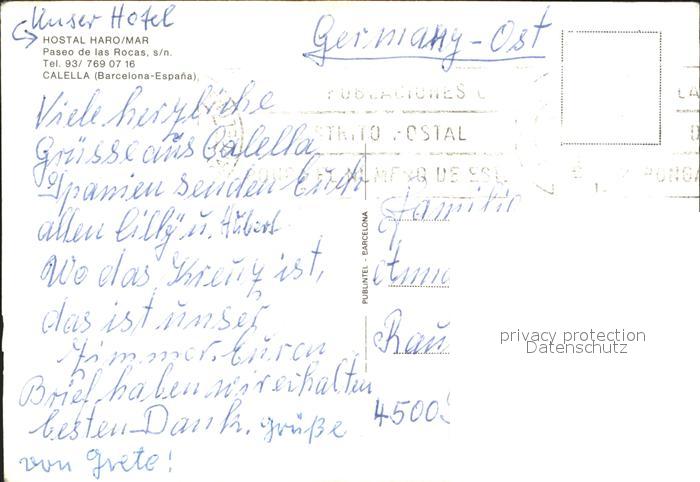 Unser Hotel
HOSTAL HARO/MAR
Paseo de las Rocas, s/n.
Tel. 93/ 769 07 16
CALELLA (Barcelona-España),
Germany-Ost
Viele herzliche
Grüsse aus Calella
Spanien senden Euch
allen Cilly u. Hubert
Wo das Kreuz ist,
das ist unser
Zimmer. Euren
Brief haben wir erhalten
besten Dank. Grüße
von Grete!
PUBLINTEL - BARCELONA
POBLACIONES
DISTRITO POSTAL
NUMERO DE
PONGA
Familie
Anna
Rau
4500
privacy protection
Datenschutz